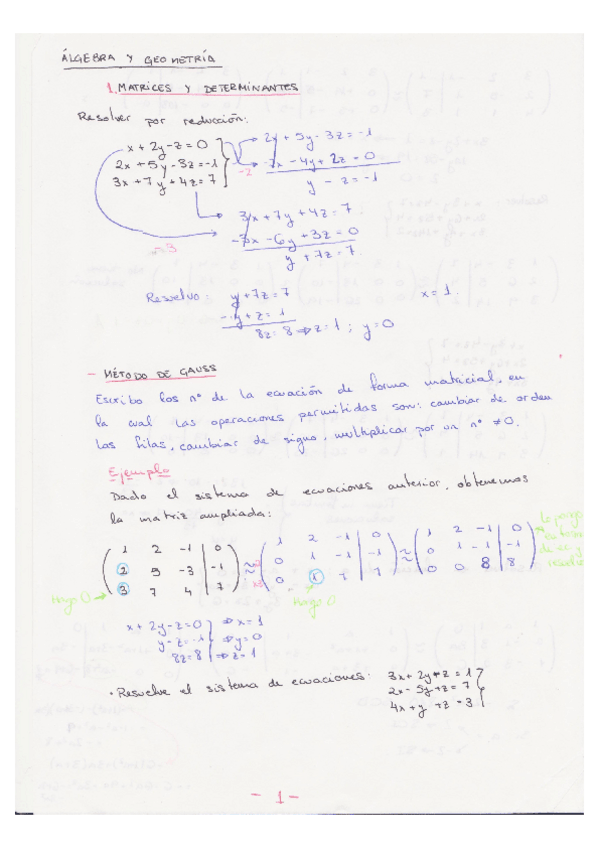 ÁLGEBRA Y GEOMETRÍA
1. MATRICES Y DETERMINANTES
Resolver por reducción:
x + 2y - z = 0
2x + 5y - 3z = -1
3x + 7y + 4z = 7
-2
-3
2x + 5y - 3z = -1
-2x - 4y + 2z = 0
y - z = -1
3x + 7y + 4z = 7
-3x - 6y + 3z = 0
y + 7z = 7
Resuelvo: y + 7z = 7
-y + z = 1
8z = 8 ⇒ z = 1 ; y = 0
x = 1.
- MÉTODO DE GAUSS
Escribo los nº de la ecuación de forma matricial, en
la cual las operaciones permitidas son: cambiar de orden
las filas, cambiar de signo, multiplicar por un nº ≠ 0.
Ejemplo
Dado el sistema de ecuaciones anterior, obtenemos
la matriz ampliada:
1 2 -1 | 0
2 5 -3 | -1
3 7 4 | 7
≈
1 2 -1 | 0
0 1 -1 | -1
0 1 7 | 7
≈
1 2 -1 | 0
0 1 -1 | -1
0 0 8 | 8
Hago 0
Hago 0
Lo pongo
x + 2y - z = 0 ⇒ x = 1
y - z = -1 ⇒ y = 0
8z = 8 ⇒ z = 1
· Resuelve el sistema de ecuaciones:
3x + 2y + z = 1
2x - 5y + z = 7
4x + y + z = 3
- 1 -